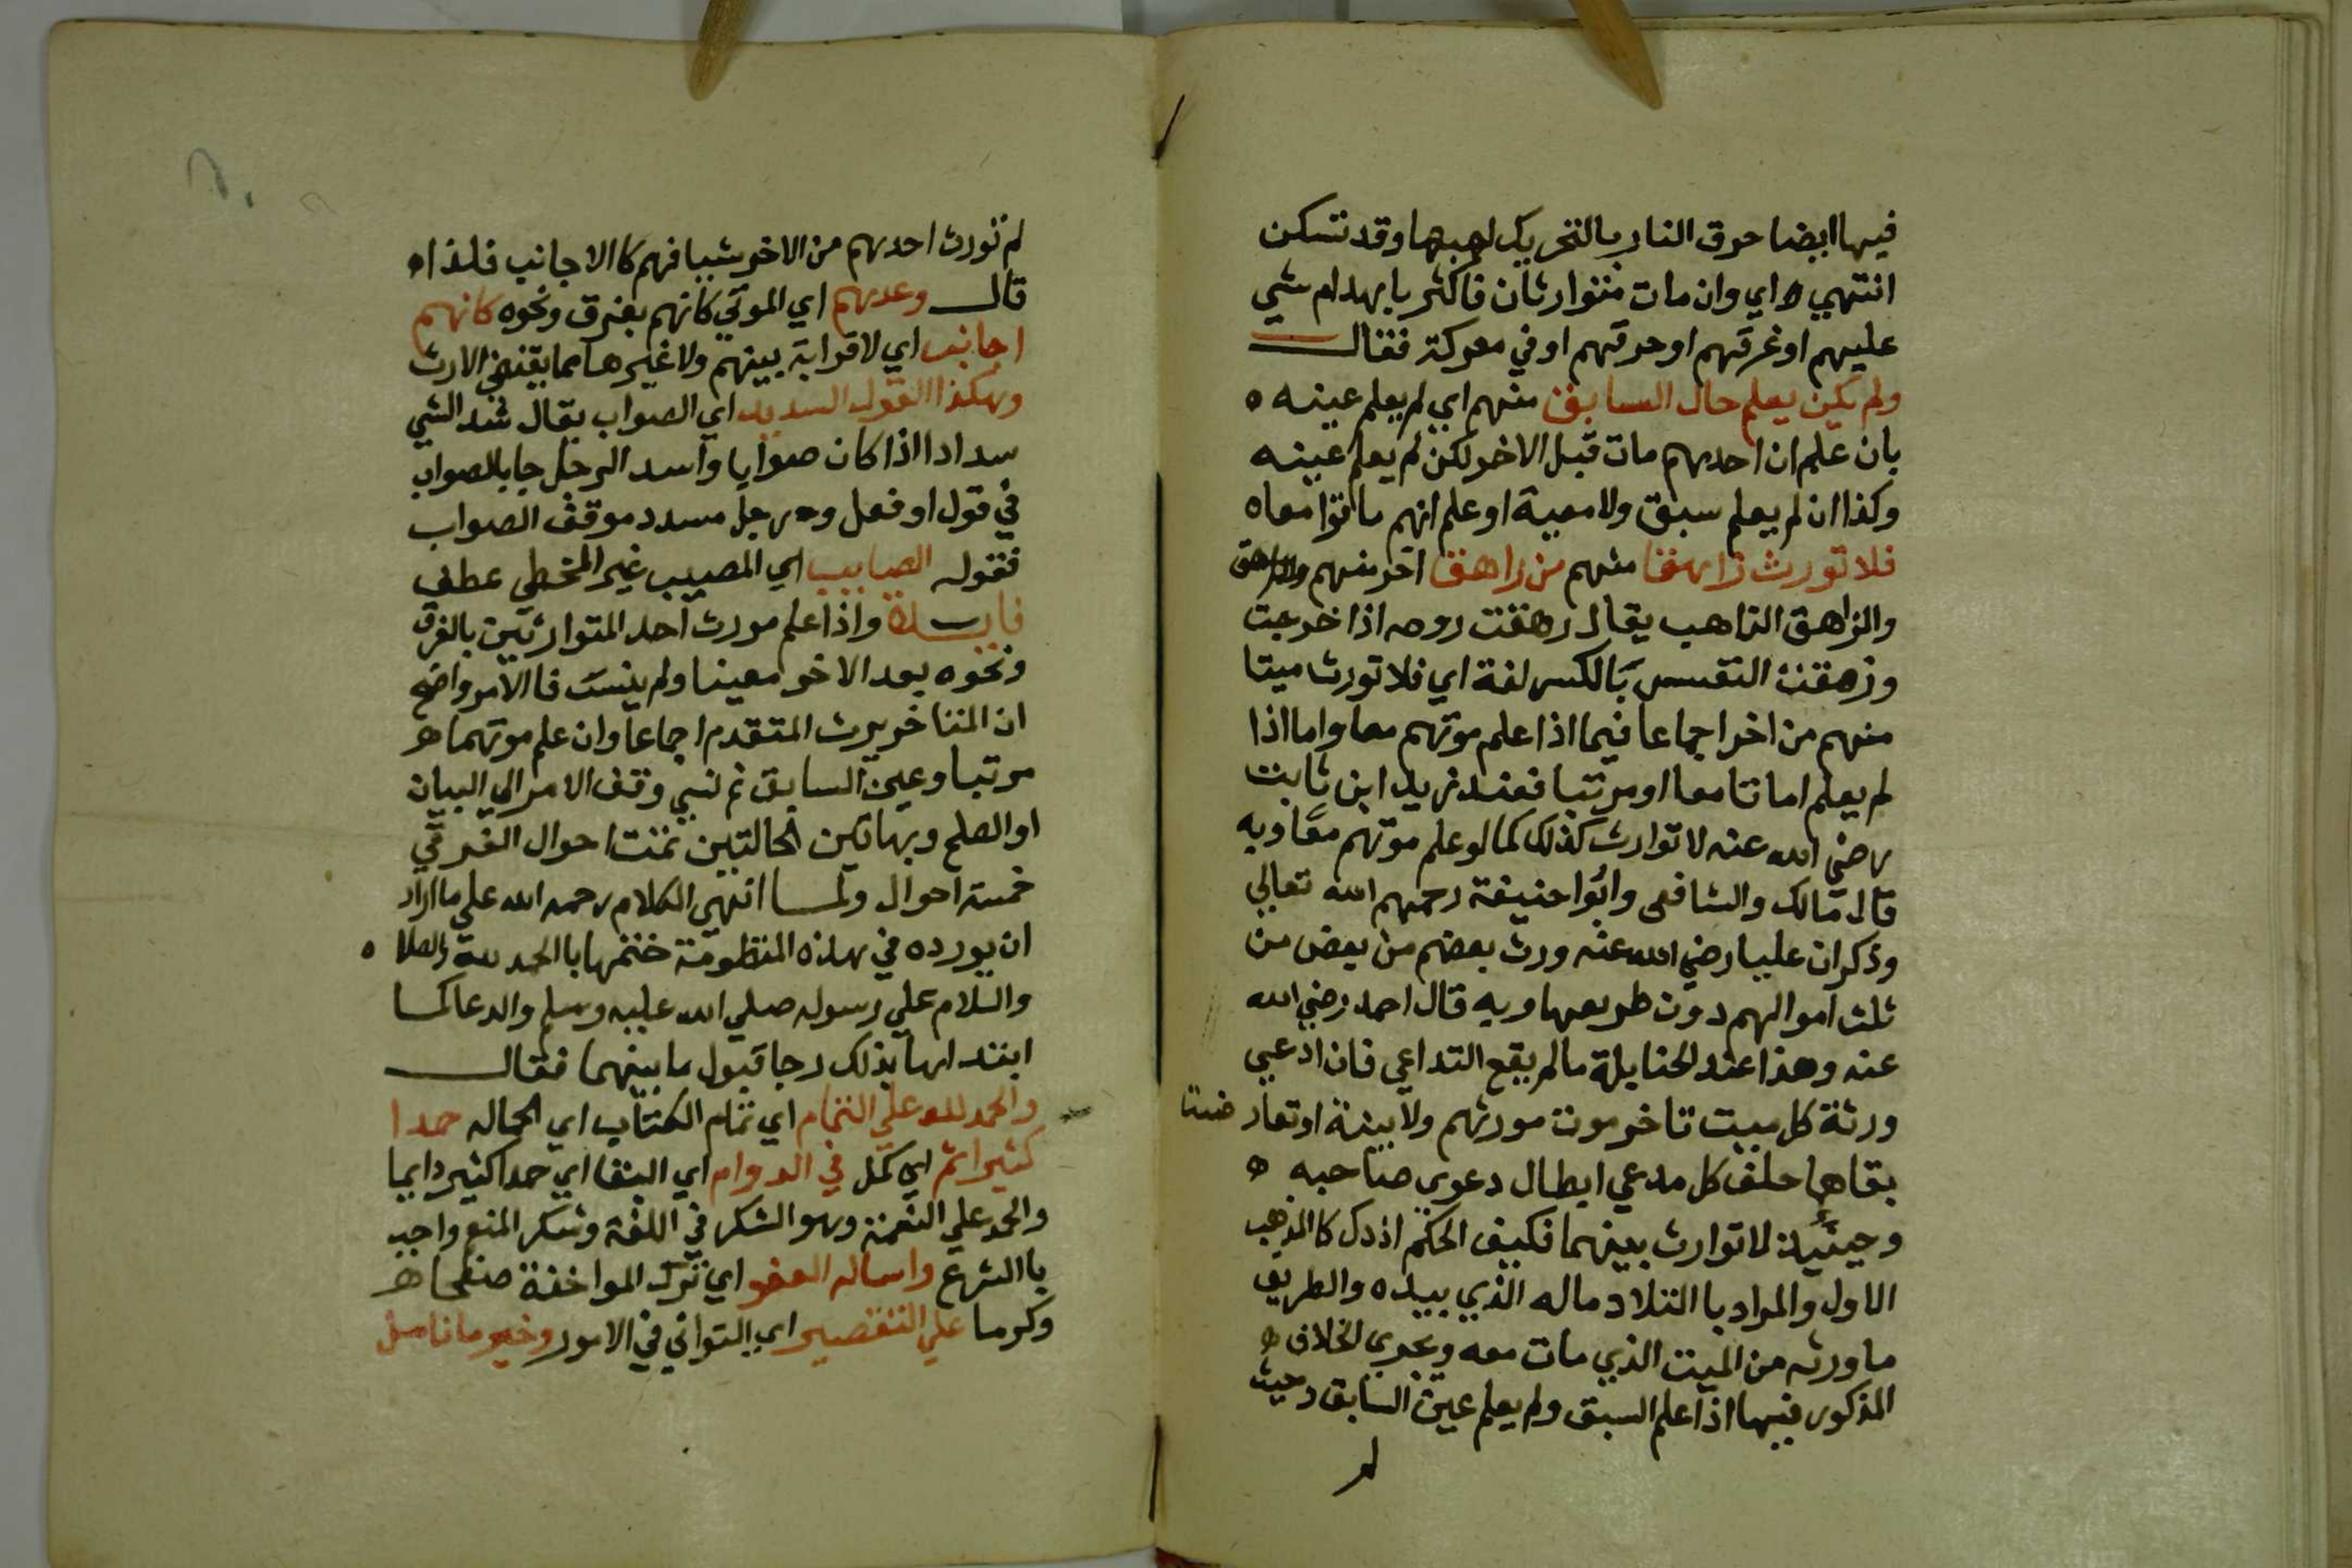 فيها ايضا حرق النار بالتحريك لهبها وقد تسكن
انتهي ه اي وان مات متوارثان فاكثر بانهدام شي
عليهم او غرقهم او حرقهم او في معركة فقال
ولم يكن يعلم حال السابق منهم اي لم يعلم عينه ه
بان علم ان احدهم مات قبل الاخر لكن لم يعلم عينه
وكذا ان لم يعلم سبق ولا معية او علم انهم ماتوا معا ه
فلا تورث زاهقا منهم من زاهق اخر منهم والزاهق
والزاهق الذاهب يقال زهقت روحه اذا خرجت
وزهقت النفس بالكسر لغة اي فلا تورث ميتا
منهم من اخر اجماعا فيما اذا علم موتهم معا واما اذا
لم يعلم اماتا معا او مرتبا فعند زيد ابن ثابت
رضي الله عنه لا توارث كذلك كما لو علم موتهم معا وبه
قال مالك والشافعي وابوا حنيفة رحمهم الله تعالي
وذكر ان عليا رضي الله عنه ورث بعضهم من بعض من
ثلث اموالهم دون طريفها وبه قال احمد رضي الله
عنه وهذا عند الحنابلة ما لم يقع التداعي فان ادعي
ورثة كل ميت تاخر موت مورثهم ولا بينة او تعارضتا
بقاهما حلف كل مدعي ابطال دعوي صاحبه ه
وحينئذ لا توارث بينهما فكيف الحكم اذ ذاك كالمذهب
الاول والمراد با التلاد ماله الذي بيده والطريف
ما ورثه من الميت الذي مات معه ويجري الخلاف ه
المذكور فيها اذا علم السبق ولم يعلم عين السابق وحيث
لم
لم نورث احدهم من الاخر شيا فهم كا الاجانب فلذا ه
قال وعدهم اي الموتي كانهم بغرق ونحوه كانهم
اجانب اي لا قرابة بينهم ولا غيرها مما يقتضي الارث
وهكذا القول السديد اي الصواب يقال سد الشي
سدادا اذا كان صوابا واسد الرجل جا بالصواب
في قول او فعل ورجل مسدد موفق الصواب
فقوله الصايب اي المصيب غير المخطي عطف
فايدة واذا علم مورث احد المتوارثين بالغرق
ونحوه بعد الاخر معينا ولم ينس فا الامر واضح
ان المتاخر يرث المتقدم اجماعا وان علم موتهما
مرتبا وعين السابق ثم نسي وقف الامر الي البيان
او الصلح وبهاتين الحالتين تمت احوال الغرقي
خمسة احوال ولما انهي الكلام رحمه الله علي ما اراد
ان يورده في هذه المنظومة ختمها با الحمد لله والصلا ه
والسلام علي رسوله صلي الله عليه وسلم والدعا كما
ابتداها بذلك رجا قبول ما بينهما فقال
والحمد لله علي التمام اي تمام الكتاب اي كماله حمدا
كثيرا تم اي كمل في الدوام اي البقا اي حمدا كثير دايما
والحمد علي النعمة وهو الشكر في اللغة وشكر المنعم واجب
با الشرع واساله العفو اي ترك المواخذة صفحا
وكرما علي التقصير اي التواني في الامور وخير ما نامل